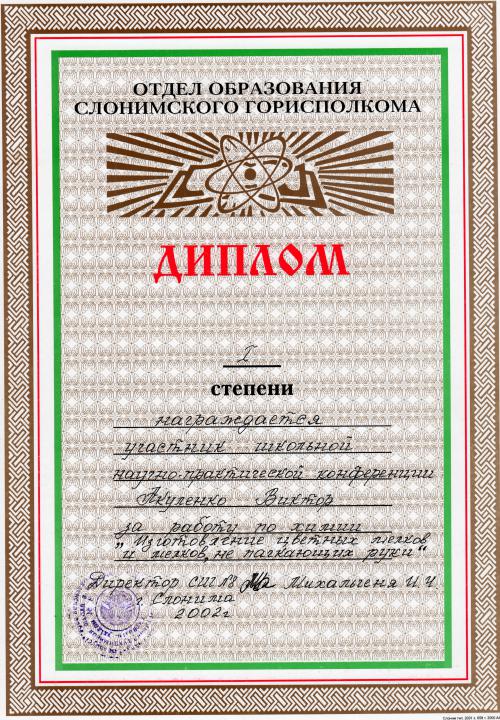 ОТДЕЛ ОБРАЗОВАНИЯ
СЛОНИМСКОГО ГОРИСПОЛКОМА
ДИПЛОМ
I
степени
награждается
участник школьной
научно-практической конференции
Якуленко Виктор
за работу по химии
„Изготовление цветных мелков
и мелков, не пачкающих руки“
Директор СШ №8 Михальченя И.И.
г. Слонима
2002г